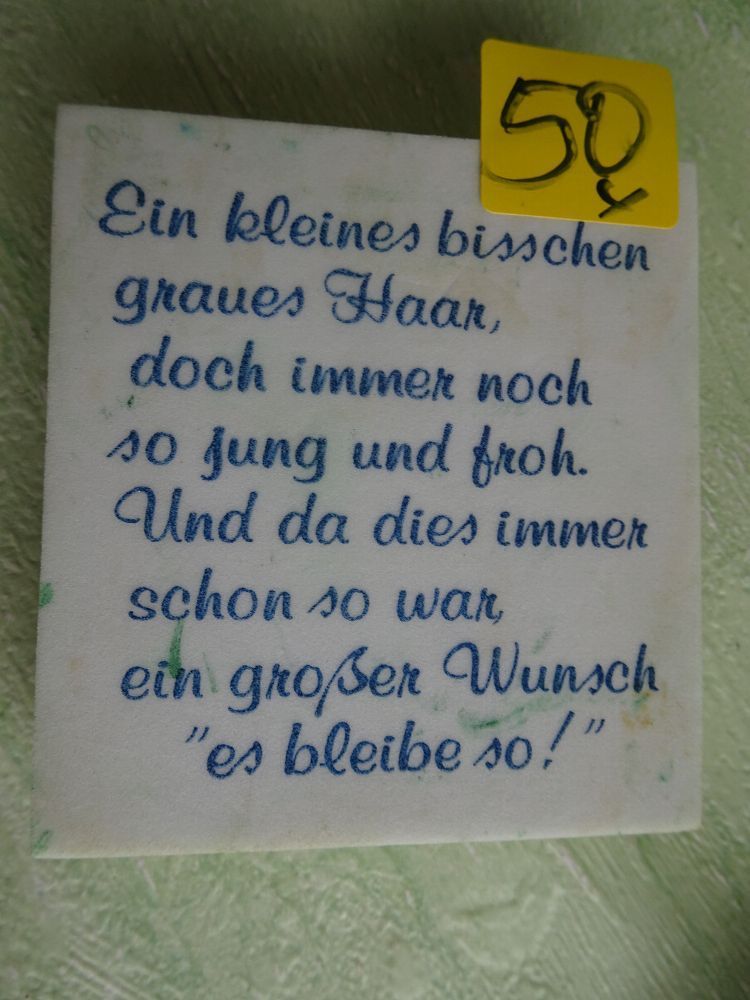 50
Ein kleines bisschen
graues Haar,
doch immer noch
so jung und froh.
Und da dies immer
schon so war,
ein großer Wunsch
"es bleibe so!"